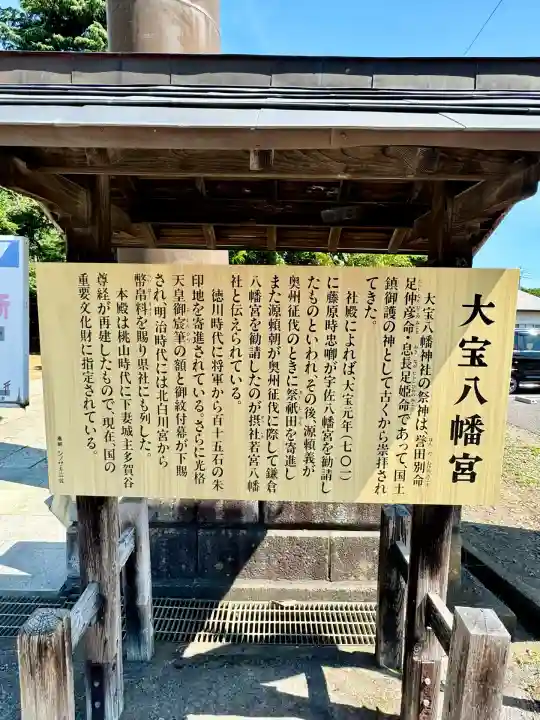 大宝八幡宮
大宝八幡神社の祭神は、誉田別命
足仲彦命・息長足姫命であって、国土
鎮御護の神として古くから崇拝され
てきた。
社殿によれば、大宝元年(七〇一)
に藤原時忠卿が宇佐八幡宮を勧請し
たものといわれ、その後、源頼義が
奥州征伐のときに祭祇田を寄進し
また源頼朝が奥州征伐に際して鎌倉
八幡宮を勧請したのが摂社若宮八幡
社と伝えられている。
徳川時代に将軍から百十五石の朱
印地を寄進されている。さらに光格
天皇御宸筆の額と御紋付幕が下賜
され、明治時代には北白川宮から
幣帛料を賜り県社にも列した。
本殿は桃山時代に下妻城主多賀谷
尊経が再建したもので、現在、国の
重要文化財に指定されている。
所